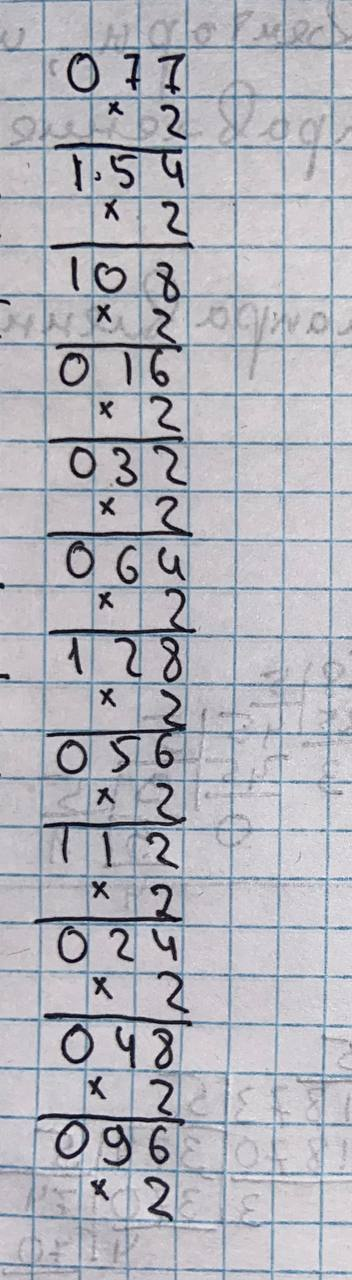 0 7 7
× 2
1.5 4
× 2
1 0 8
× 2
0 1 6
× 2
0 3 2
× 2
0 6 4
× 2
1 2 8
× 2
0 5 6
× 2
1 1 2
× 2
0 2 4
× 2
0 4 8
× 2
0 9 6
× 2